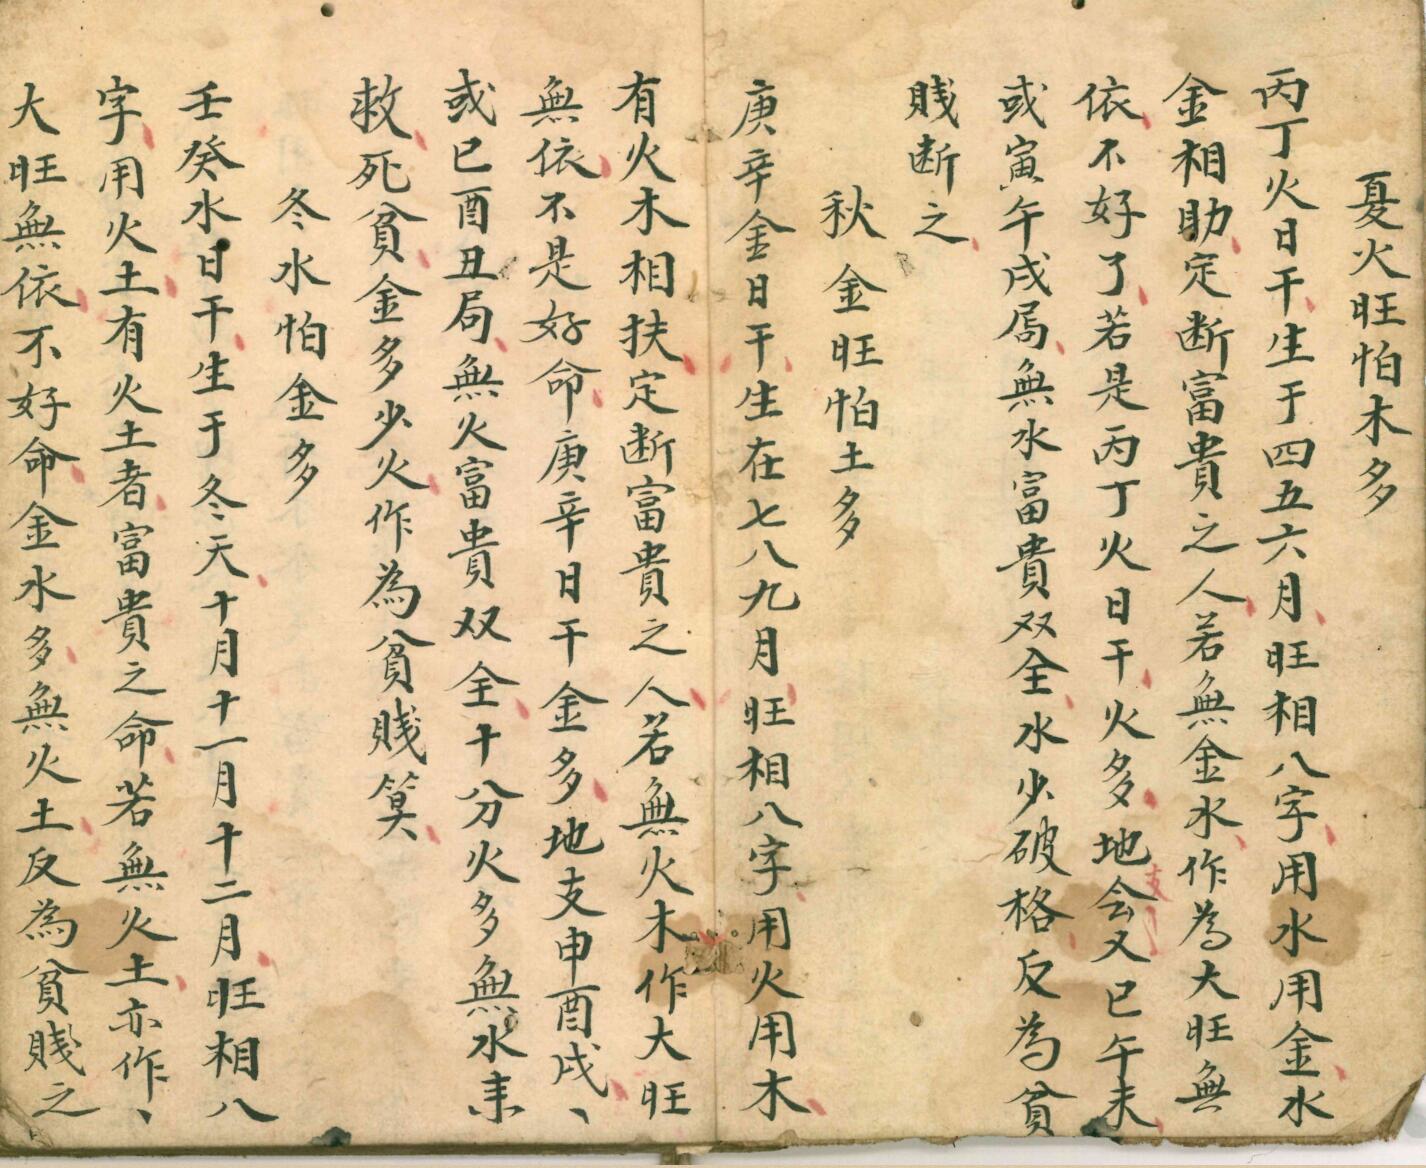 夏火旺怕木多
丙丁火日干生于四五六月旺相八字用水用金水
金相助定断富貴之人若無金水作為大旺無
依不好了若是丙丁火日干火多地支会又巳午未
或寅午戌局無水富貴双全水少破格反為貧
賎断之
秋金旺怕土多
庚辛金日干生在七八九月旺相八字用火用木
有火木相扶定断富貴之人若無火木作大旺
無依不是好命庚辛日干金多地支申酉戌、
或巳酉丑局無火富貴双全十分火多無水来
救死貧金多少火作為貧賎筭
冬水怕金多
壬癸水日干生于冬天十月十一月十二月旺相八
字用火土有火土者富貴之命若無火土亦作、
大旺無依不好命金水多無火土反為貧賎之